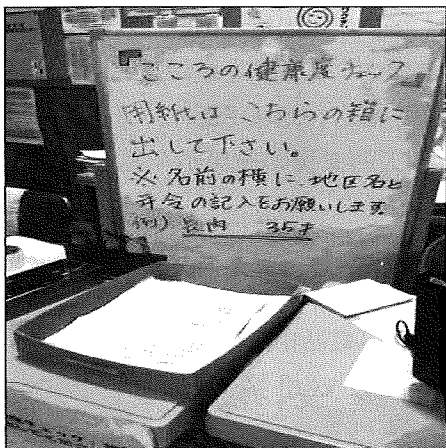 こころの健康度チェック
用紙は、こちらの箱に
出して下さい。
※名前の横に、地区名と
年令の記入をお願いします
例) 長内 35才